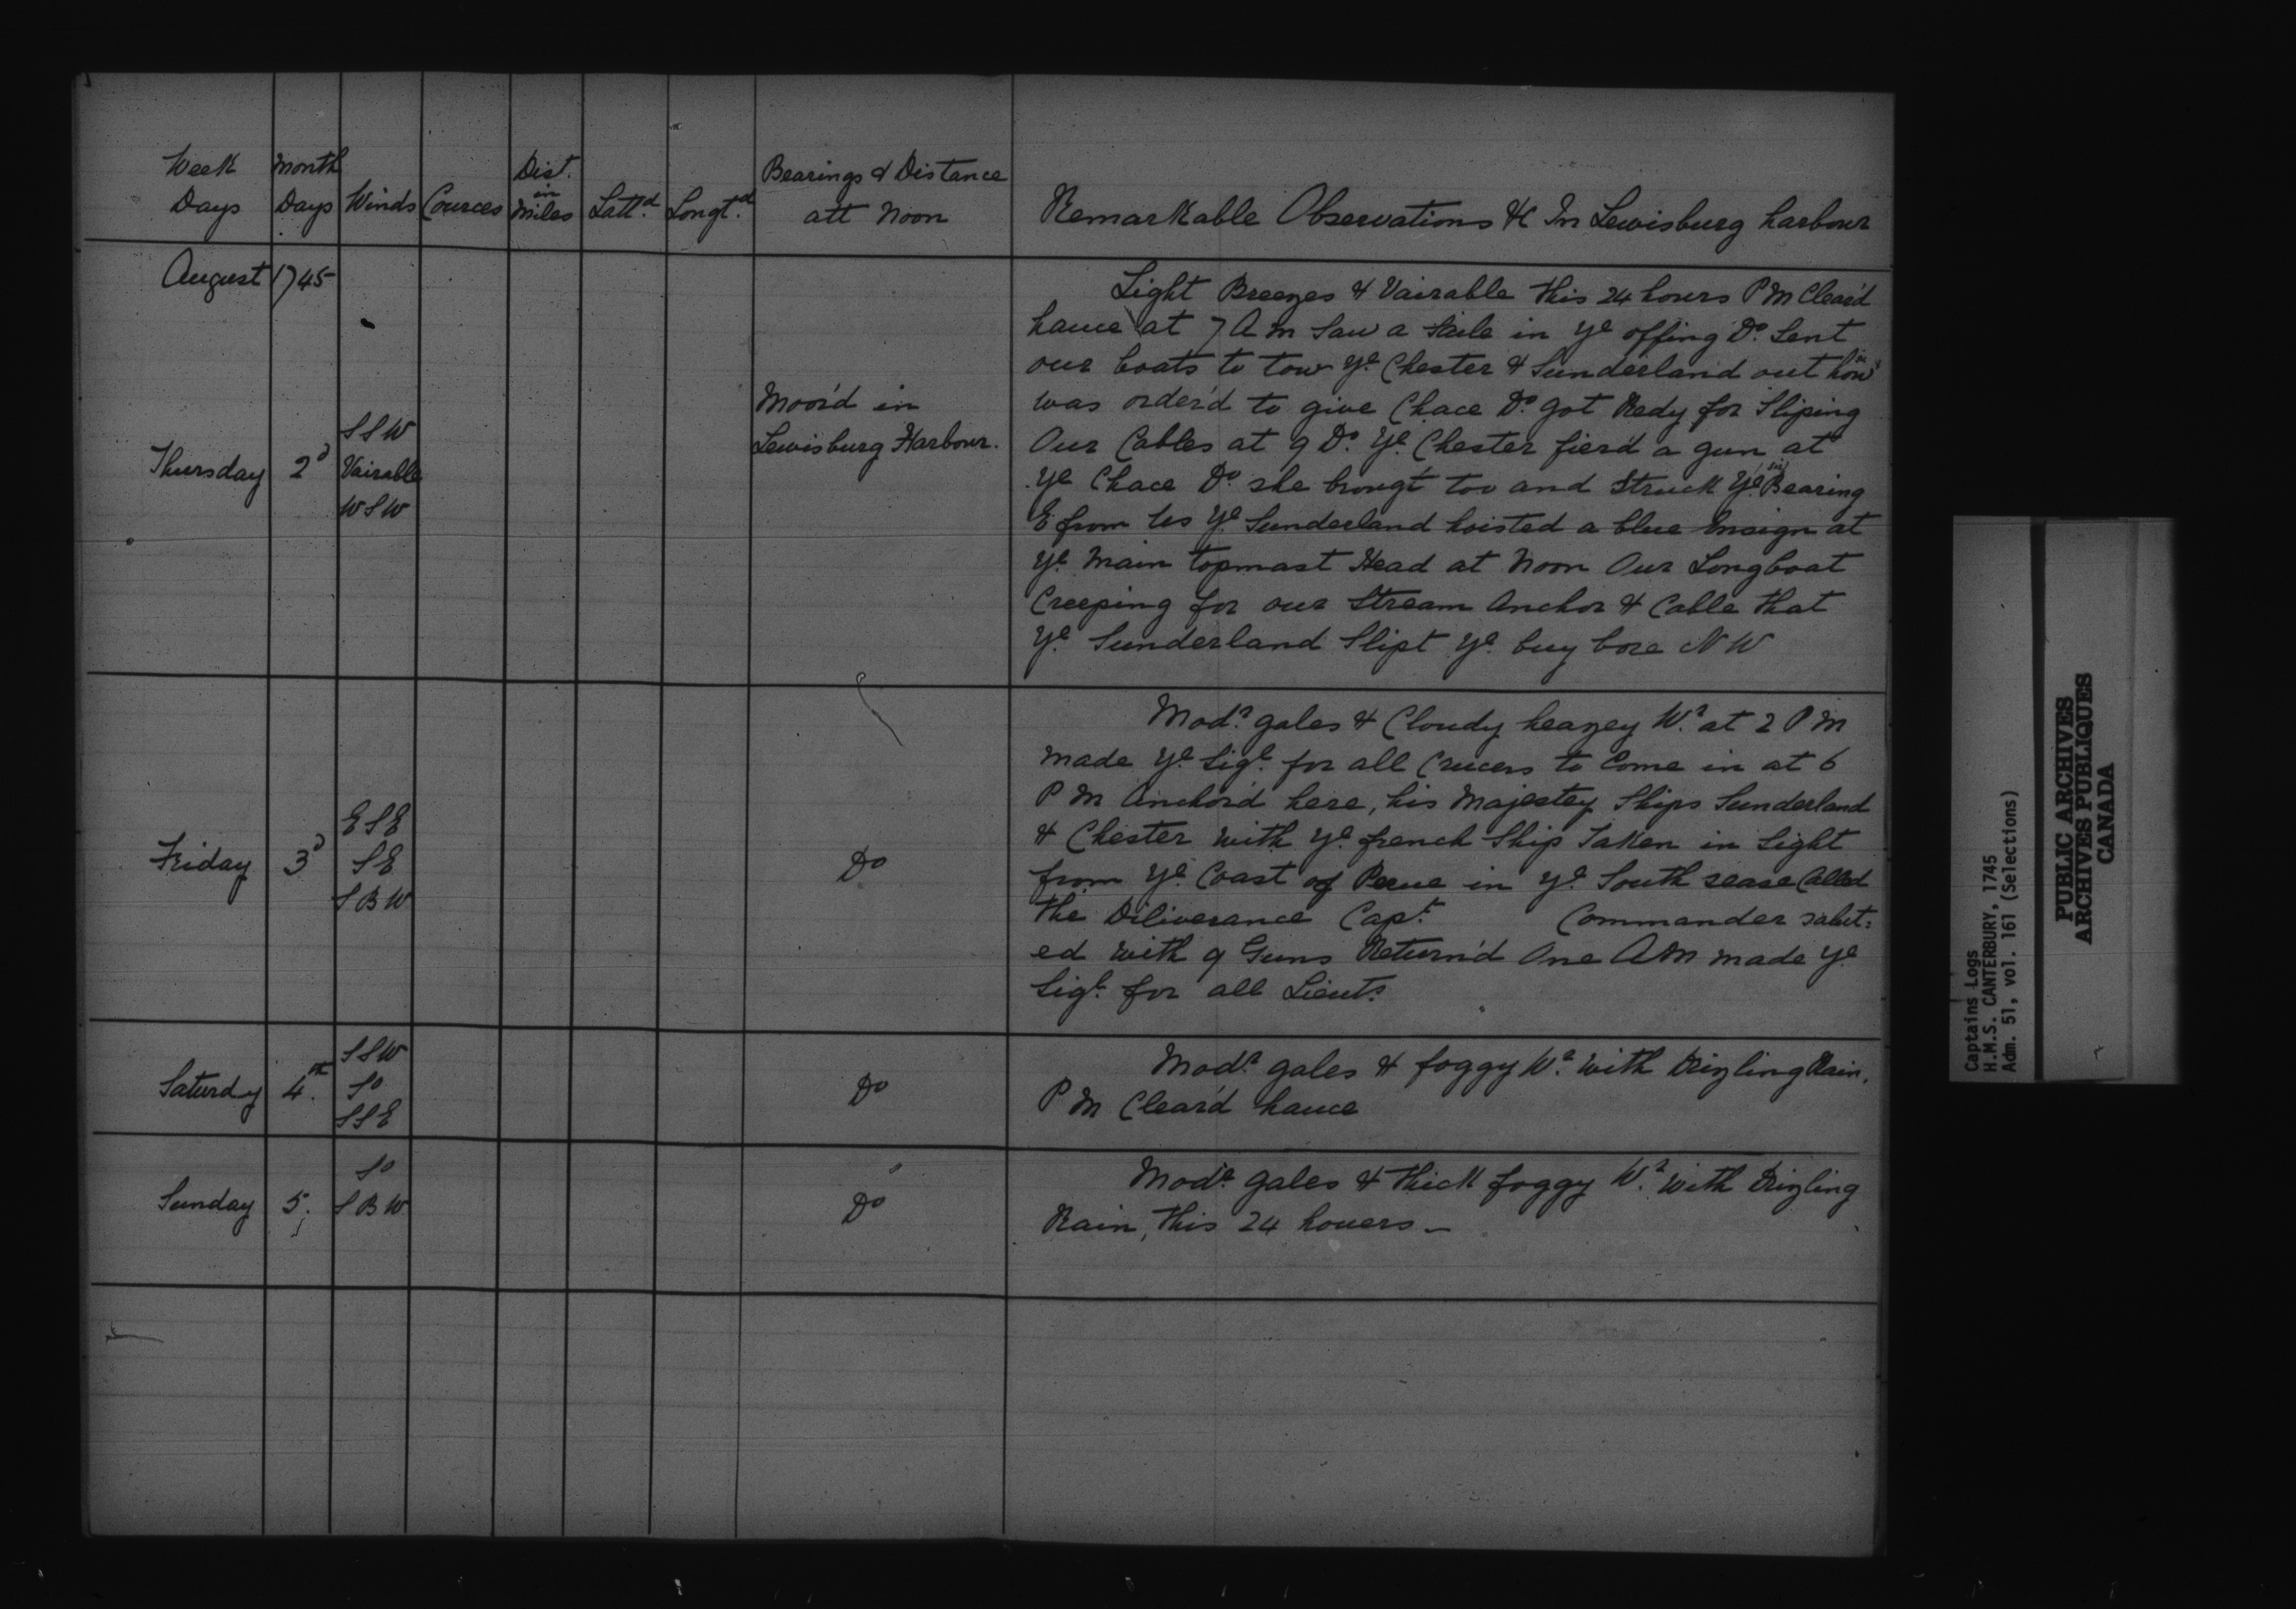 Week Days | Month Days | Winds | Cources | Dist. in Miles | Latt.d | Longt.d | Bearings & Distance att Noon | Remarkable Observations &c In Lewisburg harbour
August 1745
Thursday 2d
SSW
Vairable
WSW
Moor'd in
Lewisburg Harbour.
Light Breezes & Vairable this 24 hours PM Clear'd
hause at 7 AM Saw a Saile in ye offing Do. Sent
our boats to tow ye. Chester & Sunderland out
was order'd to give Chace Do. got Redy for Sliping
Our Cables at 9 Do. Ye. Chester fier'd a gun at
Ye Chace Do. she brougt too and Struck Ye. (sic) Bearing
E from us Ye. Sunderland hoisted a blue Ensign at
Ye. Main topmast Head at Noon Our Longboat
Creeping for our Stream Anchor & Cable that
Ye. Sunderland Slipt ye. buy bore NW
Friday 3d
ESE
SE
SBW
Do
Modr. gales & Cloudy heazey Wr. at 2 PM
made Ye. Sigl. for all Crucers to Come in at 6
PM Anchor'd here, his Majestey Ships Sunderland
& Chester with Ye. french Ship Taken in Sight
from Ye. Coast of Perue in ye. South sease Called
the Diliverance Capt. Commander salut=
ed with 9 Guns Return'd One AM made Ye.
Sigl. for all Lieuts.
Saturdy 4th.
SSW
So
SSE
Do
Modr. gales & foggy Wr. with Drizling Rain.
PM Clear'd hause
Sunday 5.
So
SBW
Do
Modr. gales & thick foggy Wr. with Drizling
Rain, this 24 houers _
Captains Logs
H.M.S. CANTERBURY, 1745
Adm. 51, vol. 161 (Selections)
PUBLIC ARCHIVES
ARCHIVES PUBLIQUES
CANADA